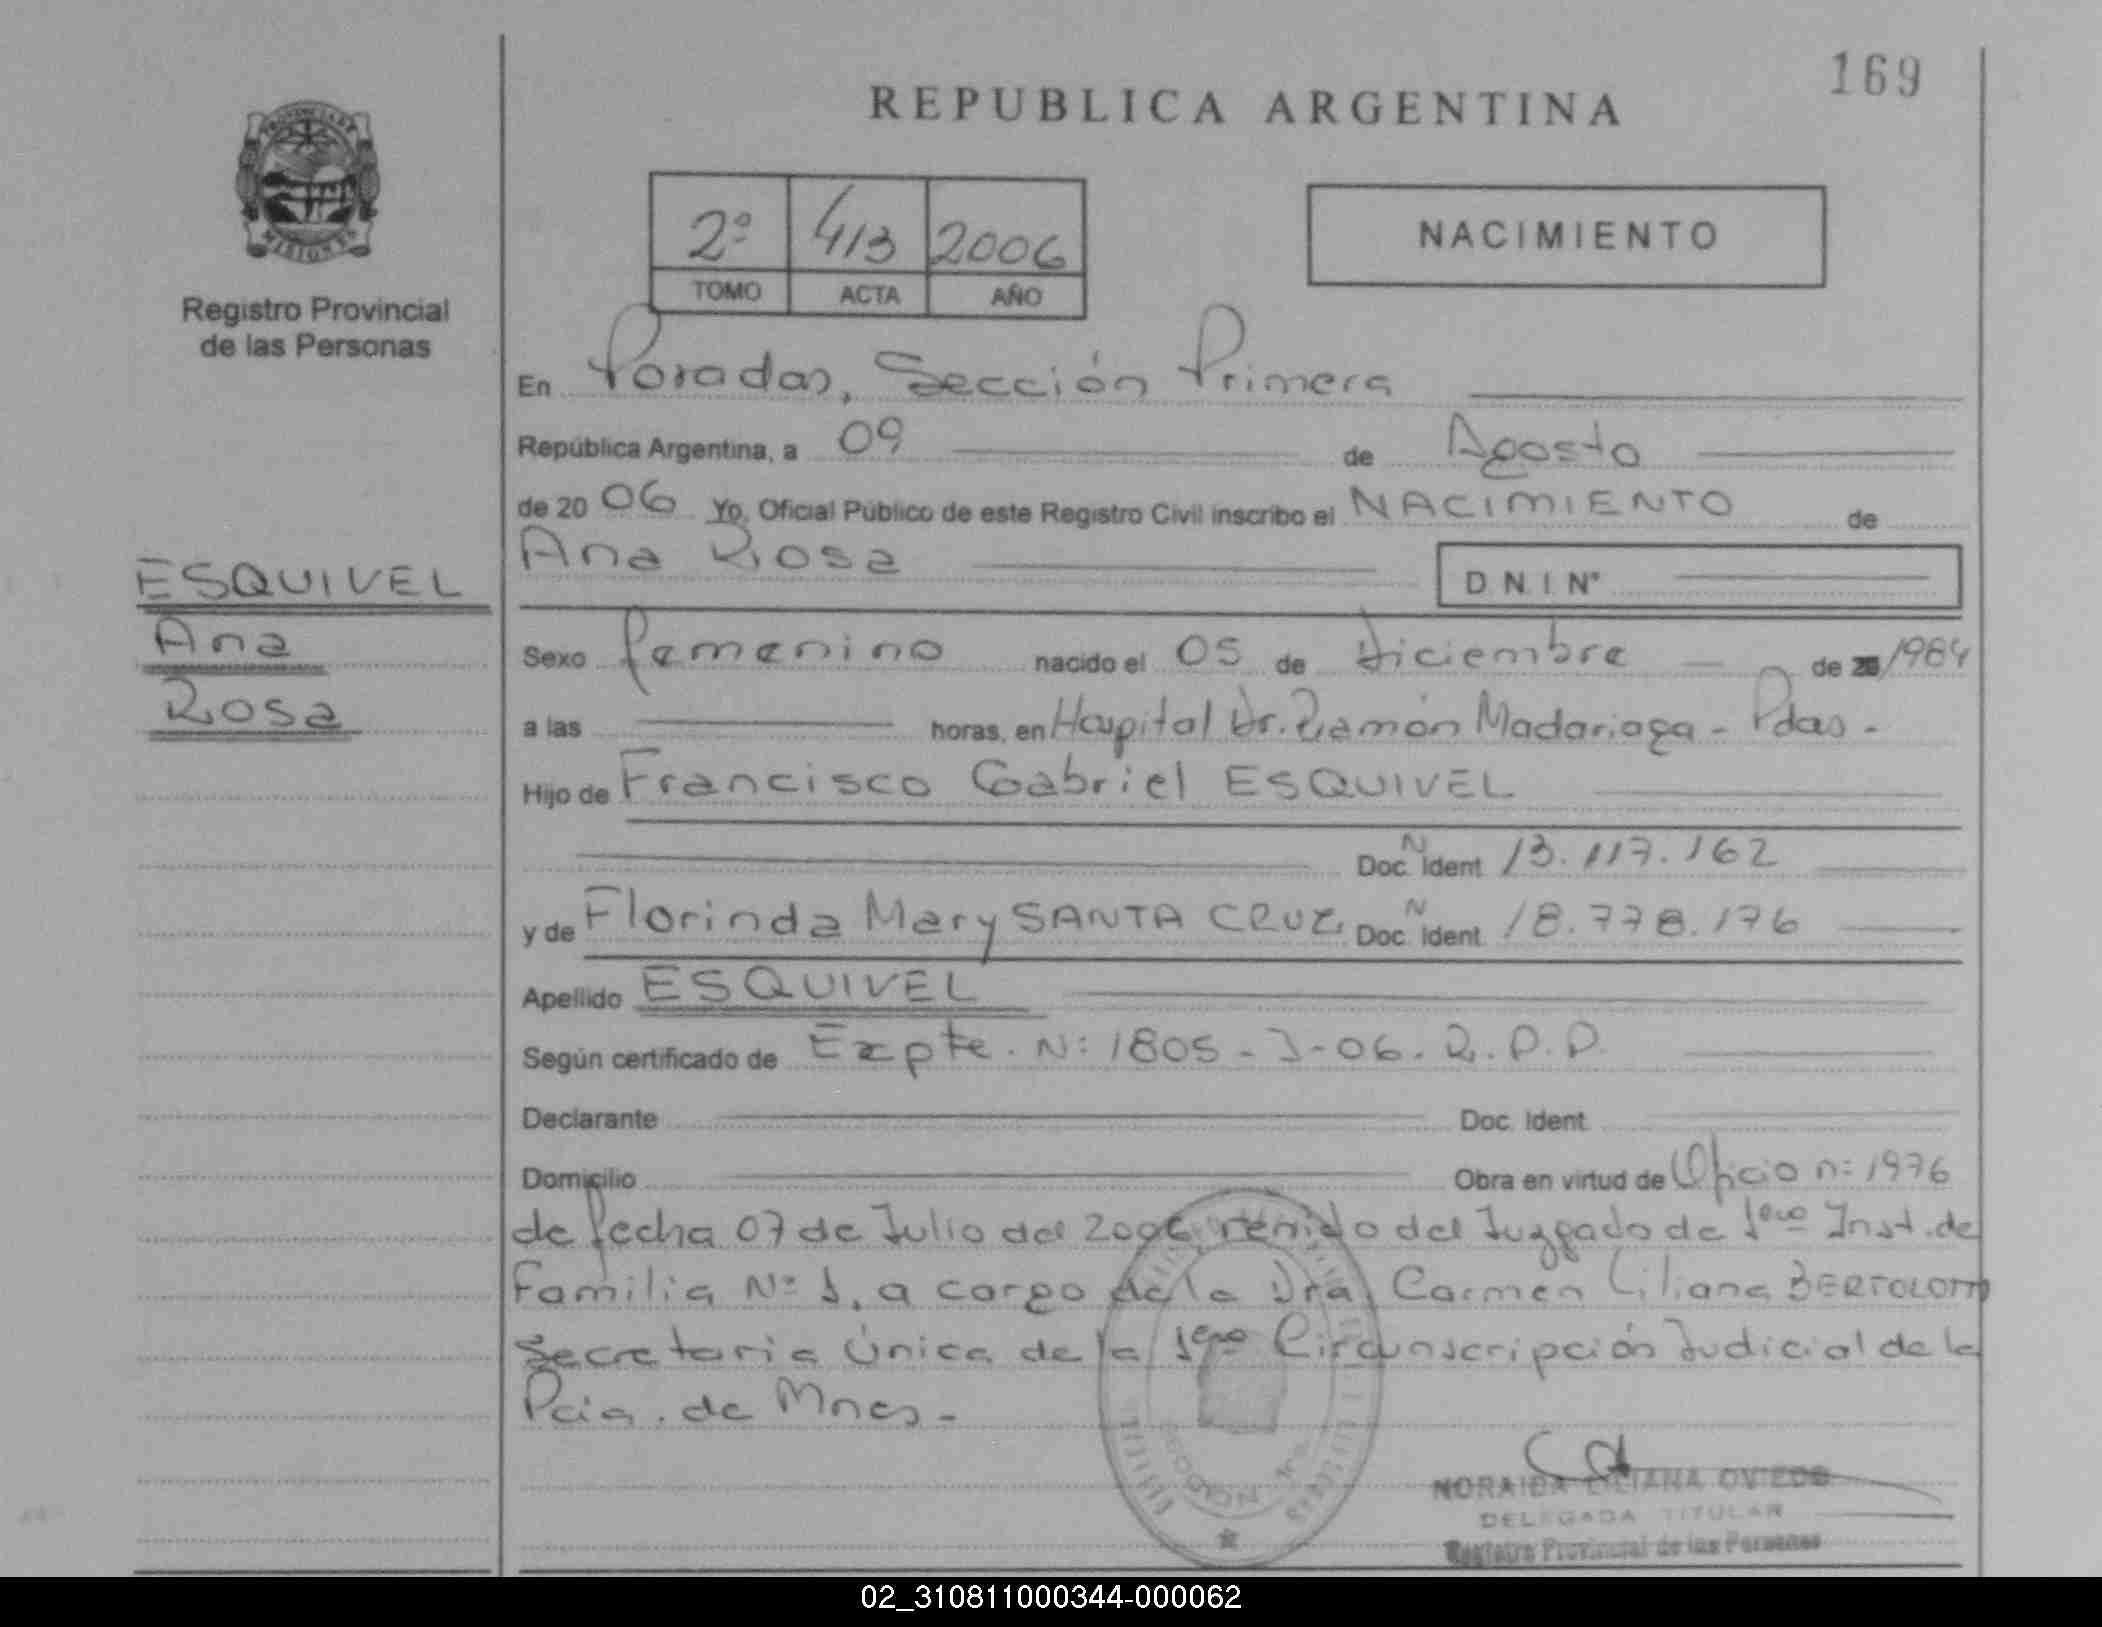 169
REPUBLICA ARGENTINA
PROVINCIA DE
MISIONES
Registro Provincial
de las Personas
2º 413 2006
TOMO ACTA AÑO
NACIMIENTO
En Posadas, Sección Primera
República Argentina, a 09 de Agosto
de 20 06 Yo, Oficial Público de este Registro Civil inscribo el NACIMIENTO de
Ana Rosa D.N.I. Nº
ESQUIVEL
Ana
Rosa
Sexo femenino nacido el 05 de diciembre de 20/1984
a las horas, en Hospital Dr. Ramón Madariaga - Pdas -
Hijo de Francisco Gabriel ESQUIVEL
Doc. N Ident 13.117.162
y de Florinda Mary SANTA CRUZ, Doc. N Ident. 18.778.176
Apellido ESQUIVEL
Según certificado de Expte. Nº 1805-J-06. R.P.P.
Declarante Doc. Ident.
Domicilio Obra en virtud de Oficio nº 1976
de fecha 07 de Julio del 2006, remido del Juzgado de 1era Inst. de
Familia Nº 1, a cargo de la Dra. Carmen Liliana BERTOLOTTI
Secretaria Única de la 1era Circunscripción Judicial de la
Pcia. de Mnes -
SECCION 1ra
NORAIDA LILIANA OVIEDO
DELEGADA TITULAR
Registro Provincial de las Personas
02_310811000344-000062